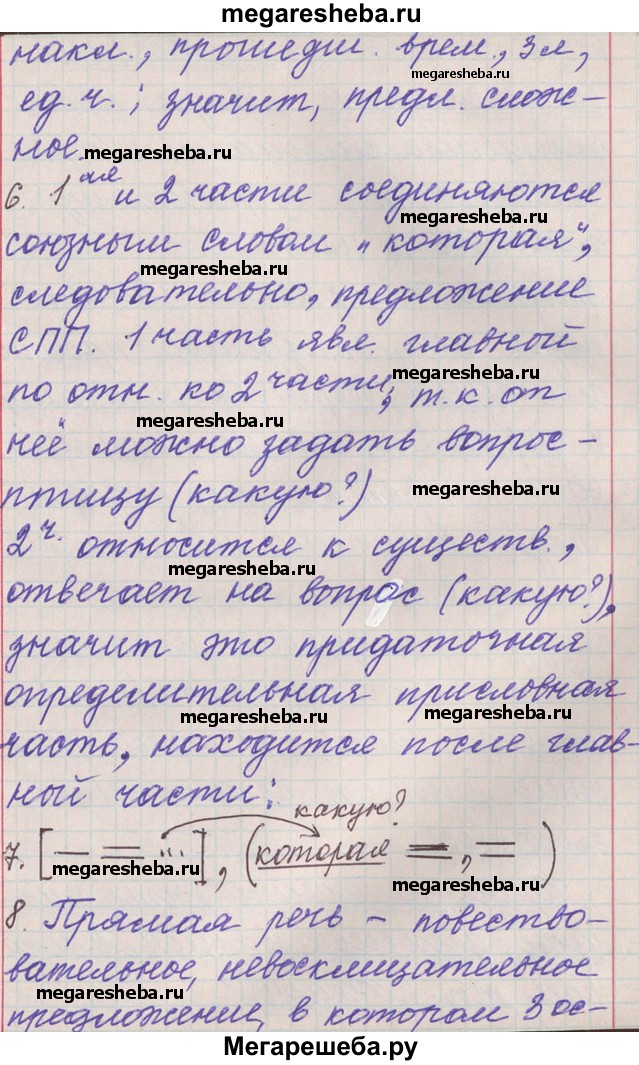 megaresheba.ru
накл., прошедш. врем., 3 л,
megaresheba.ru
ед. ч.; значит, предл. слож-
ное.
megaresheba.ru
6. 1ая и 2 части соединяются
megaresheba.ru
союзным словом „которая“,
megaresheba.ru
следовательно, предложение
СПП. 1 часть явл. главной
megaresheba.ru
по отн. ко 2 части, т.к. от
megaresheba.ru
неё можно задать вопрос-
птицу (какую?)
megaresheba.ru
2 ч. относится к существ.,
megaresheba.ru
отвечает на вопрос (какую?),
значит это придаточная
определительная присловная
megaresheba.ru megaresheba.ru
часть, находится после глав-
ной части:
megaresheba.ru
какую?
7. [ ... ], (которая , )
megaresheba.ru
megaresheba.ru
8. Прямая речь – повество-
вательное, невосклицательное
megaresheba.ru
предложение, в котором 3 ос-
Мегарешеба.ру